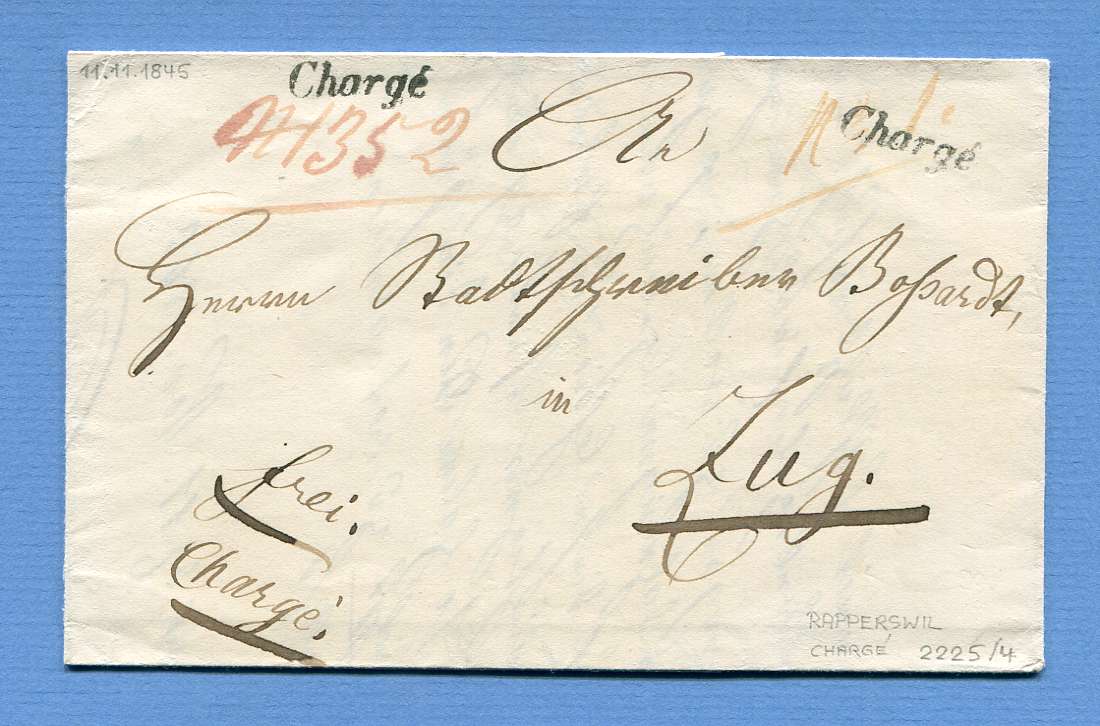 11.11.1845
Chargé
N 1352
An
Chargé
Herrn Stadtschreiber Boßardt,
in
Zug.
frei.
Chargé.
RAPPERSWIL
CHARGÉ 2225/4